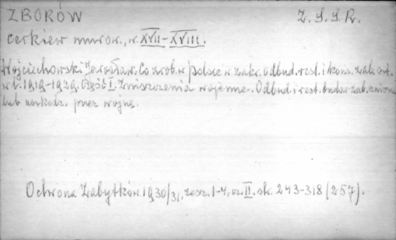 ZBORÓW Z.S.S.R.
cerkiew murow., w. XVII-XVIII.
Wojciechowski Jarosław. Co zrob. w Polsce w zakr. odbud. rest. i kons. zab. szt.
w l. 1919-1929. Część I. Zniszczenia wojenne. Odbud. i rest. budow. zab. zniszcz.
lub uszkodz. przez wojnę.
Ochrona Zabytków. 1930/31, zesz. 1-4, cz. II. str. 243-318 (257).